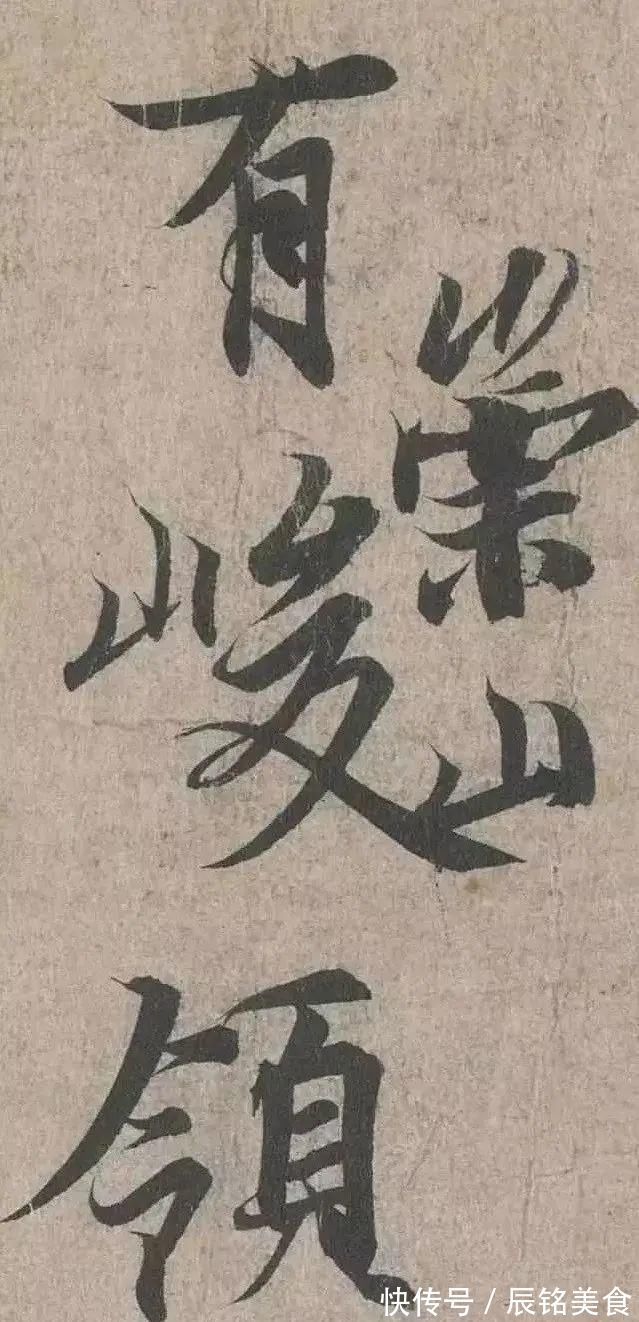 有峻領
崇山
快传号／辰铭美食